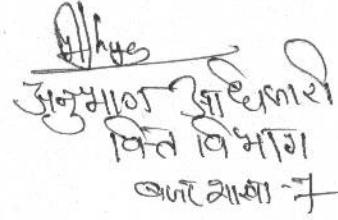 अनुभाग अधिकारी
वित्त विभाग
बजट शाखा -7